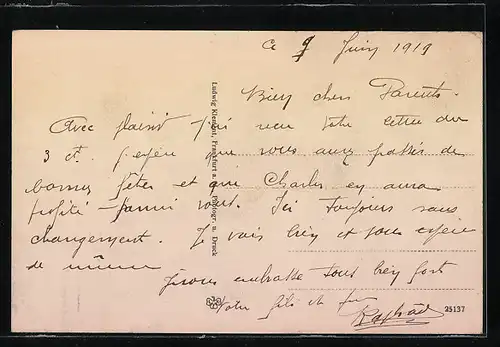 Ce 9 Juin 1919
Bien chers Parents.
Avec plaisir j'ai reçu votre lettre du
3 ct. j'espère que vous aurez passés de
bonnes fêtes et que Charles en aura
profité parmi vous. Ici toujours sans
changement. Je vais bien et vous espère
de même
Je vous embrasse tous bien fort
Votre fils et
Raphaël
Ludwig Klement, Frankfurt a. Photogr. u. Druck
25137